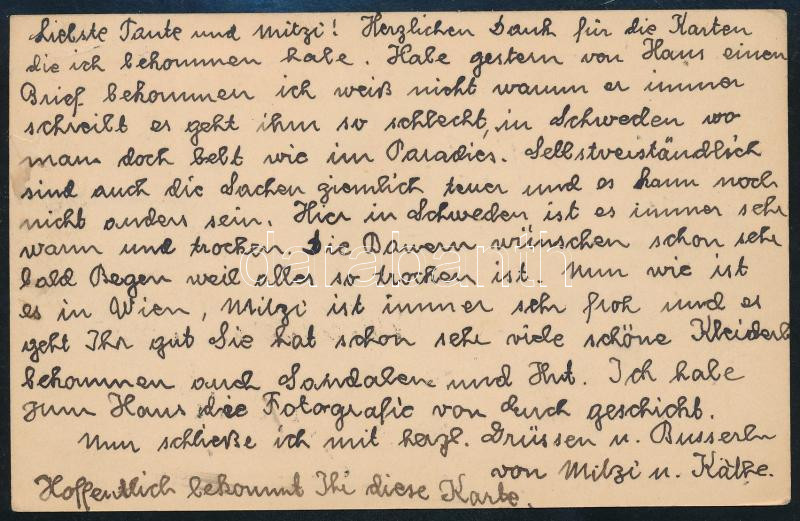 Liebste Tante und Mitzi! Herzlichen Dank für die Karten
die ich bekommen habe. Habe gestern von Hans einen
Brief bekommen ich weiß nicht warum er immer
schreibt es geht ihm so schlecht, in Schweden wo
man doch lebt wie im Paradies. Selbstverständlich
sind auch die Sachen ziemlich teuer und es kann noch
nicht anders sein. Hier in Schweden ist es immer sehr
warm und trocken. Die Bauern wünschen schon sehr
bald Regen weil alles so trocken ist. Nun wie ist
es in Wien, Mitzi ist immer sehr froh und es
geht Ihr gut Sie hat schon sehr viele schöne Kleiderl
bekommen auch Sandalen und Hut. Ich habe
zum Hans die Fotografie von Euch geschickt.
Nun schließe ich mit herzl. Grüssen u. Busserln
von Mitzi u. Käthe.
Hoffentlich bekommt Ihr diese Karte.
darabanth